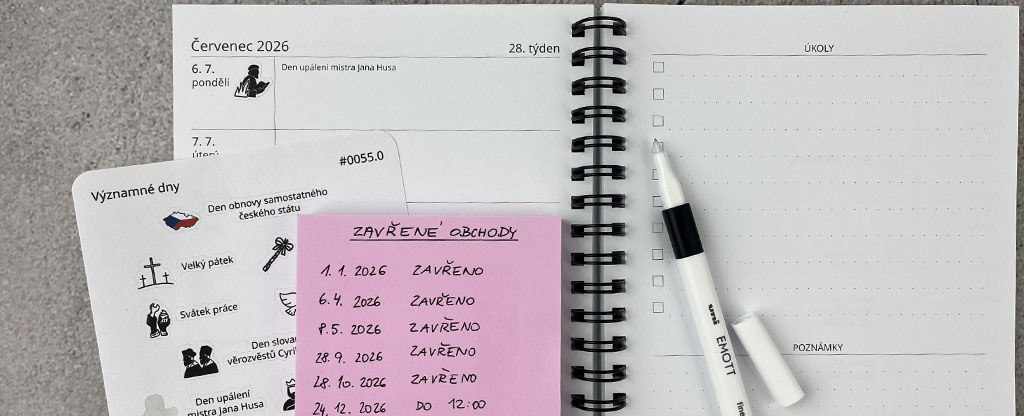 Červenec 2026
28. týden
6. 7.
pondělí
Den upálení mistra Jana Husa
7. 7.
úterý
ÚKOLY
POZNÁMKY
#0055.0
Významné dny
Den obnovy samostatného
českého státu
Velký pátek
Svátek práce
Den
věrozvěstů
Den upálení
mistra Jana Husa
ZAVŘENÉ OBCHODY
1. 1. 2026 ZAVŘENO
6. 4. 2026 ZAVŘENO
8. 5. 2026 ZAVŘENO
28. 9. 2026 ZAVŘENO
28. 10. 2026 ZAVŘENO
24. 12. 2026 DO 12:00
uni EMOTT
fine